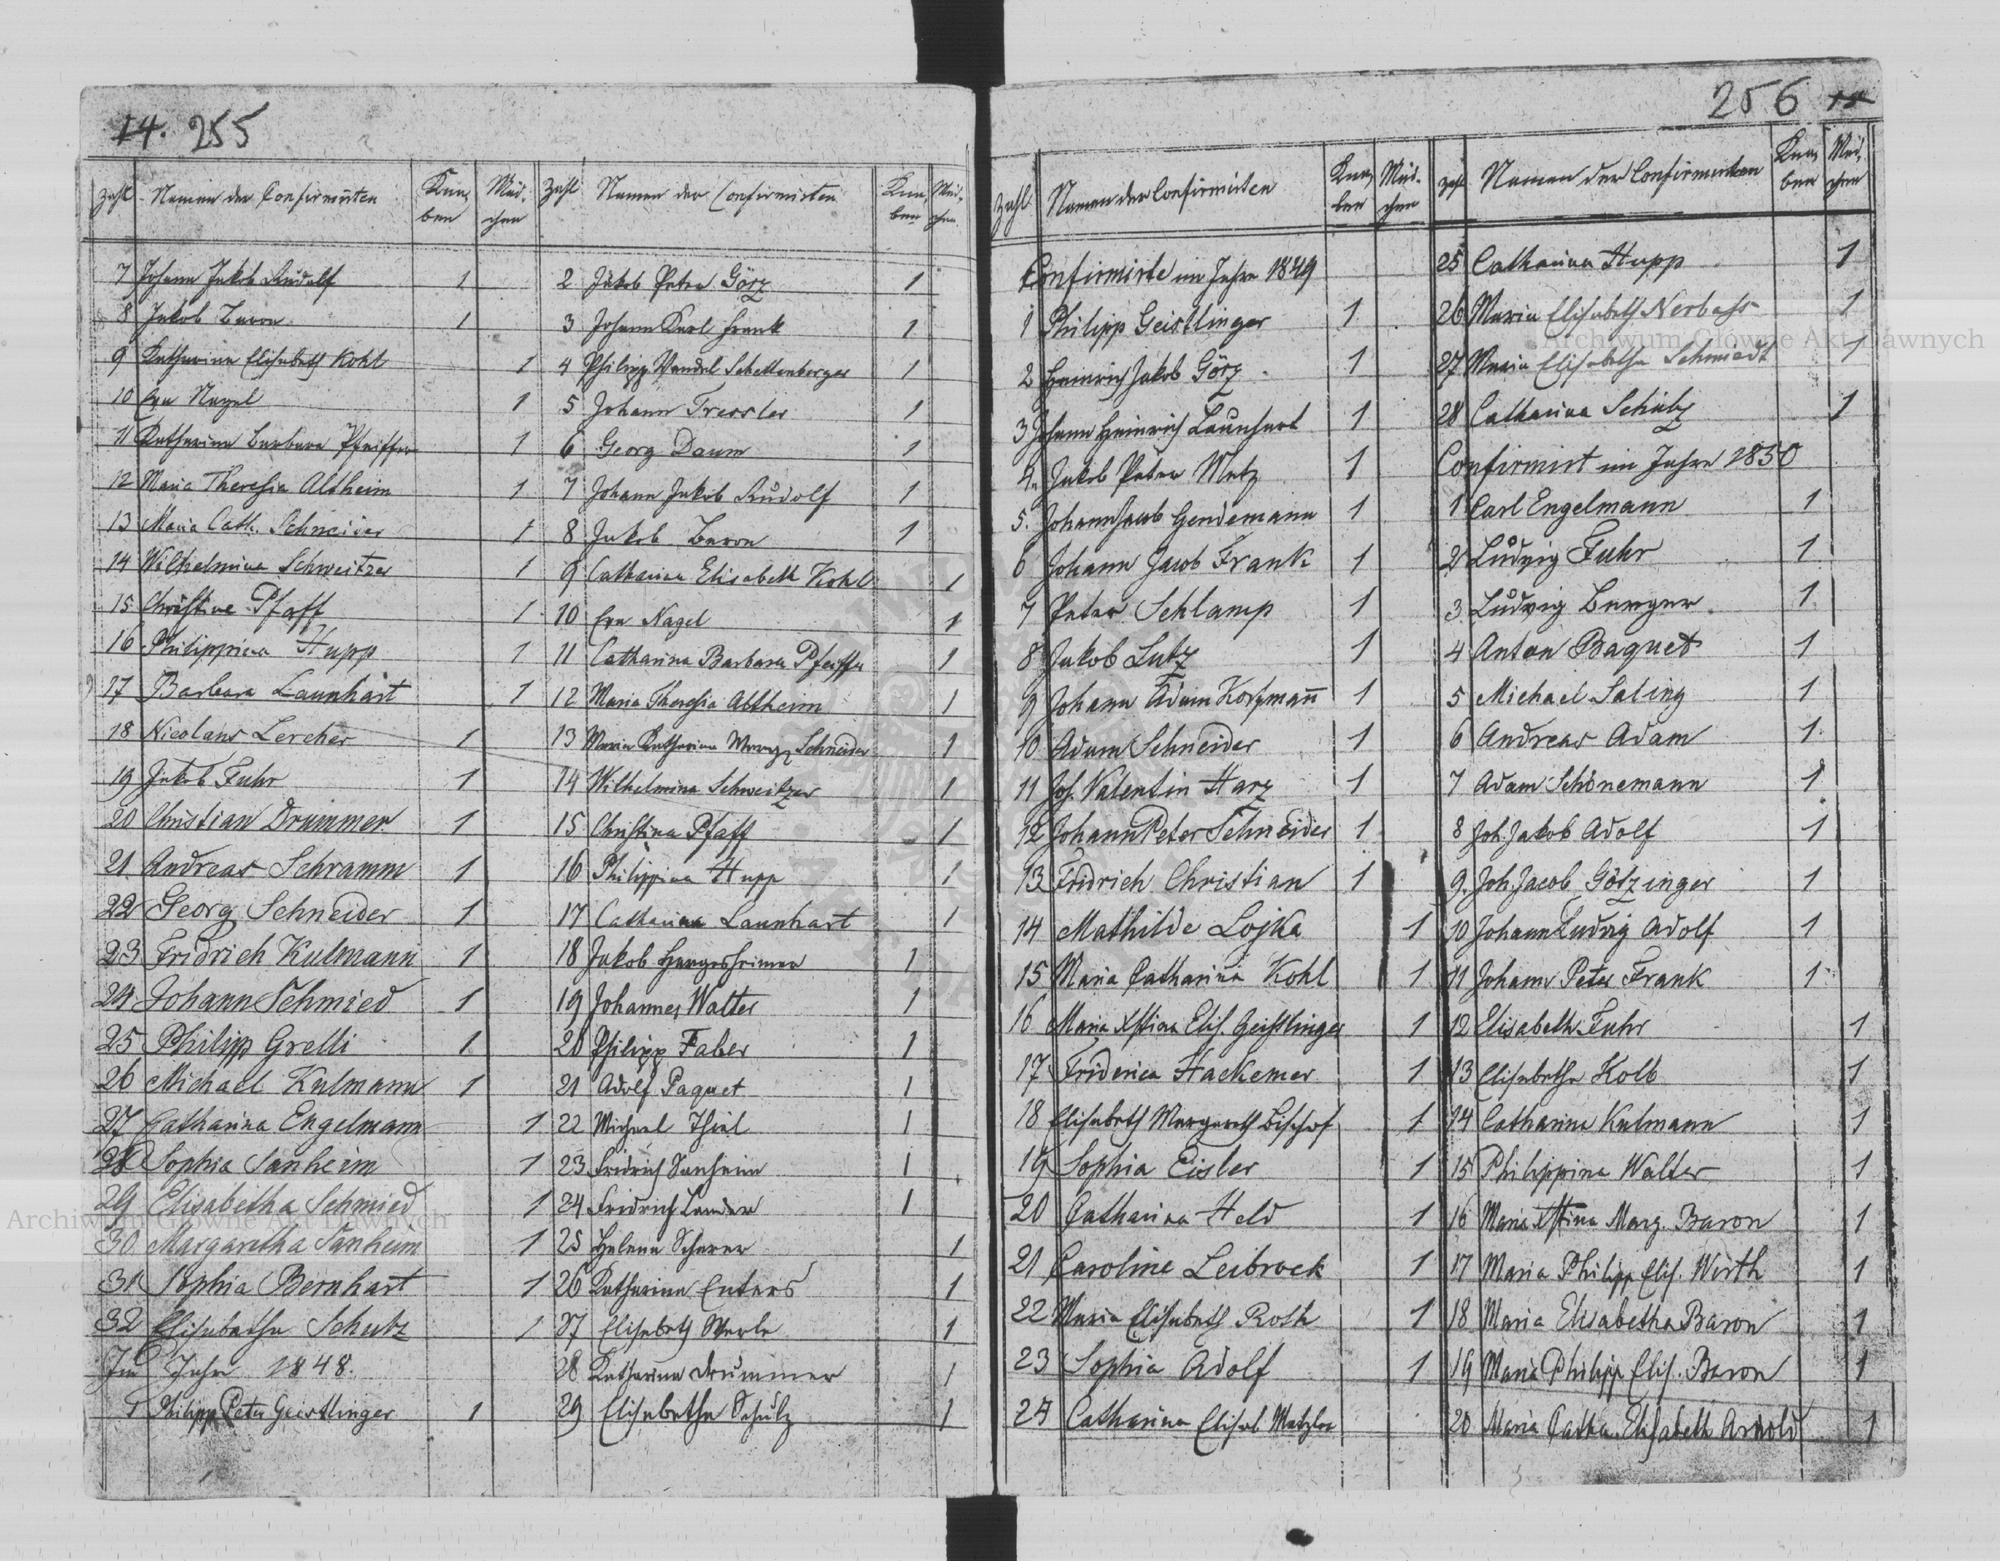 14. 255
Zahl Namen der Confirmirten Knaben Mädchen
7 Johann Jakob Rudolf 1
8 Jakob Baron 1
9 Katharina Elisabeth Kohl 1
10 Eva Nagel 1
11 Katharina Barbara Pfeiffer 1
12 Maria Theresia Altheim 1
13 Maria Cath. Schneider 1
14 Wilhelmina Schweitzer 1
15 Christine Pfaff 1
16 Philippina Hupp 1
17 Barbara Launhart 1
18 Nicolaus Lercher 1
19 Jakob Fuhr 1
20 Christian Drummer 1
21 Andreas Schramm 1
22 Georg Schneider 1
23 Fridrich Kulmann 1
24 Johann Schmied 1
25 Philipp Grelli 1
26 Michael Kulmann 1
27 Catharina Engelmann 1
28 Sophia Sanheim 1
29 Elisabetha Schmied 1
30 Margaretha Sanheim 1
31 Sophia Bernhart 1
32 Elisabetha Schutz 1
Im Jahre 1848.
1 Philipp Peter Geistlinger 1
Zahl Namen der Confirmirten Knaben Mädchen
2 Jakob Peter Görz 1
3 Johann Karl Frank 1
4 Philipp Wendel Schettenberger 1
5 Johann Tressler 1
6 Georg Daum 1
7 Johann Jakob Rudolf 1
8 Jakob Baron 1
9 Catharina Elisabeth Kohl 1
10 Eva Nagel 1
11 Catharina Barbara Pfeiffer 1
12 Maria Theresia Altheim 1
13 Maria Katharina Marg. Schneider 1
14 Wilhelmina Schweitzer 1
15 Christina Pfaff 1
16 Philippina Hupp 1
17 Catharina Launhart 1
18 Jakob Hargesheimer 1
19 Johannes Walter 1
20 Philipp Faber 1
21 Adolf Paquet 1
22 Michael Thiel 1
23 Fridrich Sanheim 1
24 Fridrich Lander 1
25 Helena Scherer 1
26 Katharina Enters 1
27 Elisabeth Werle 1
28 Katharina Drummer 1
29 Elisabetha Schulz 1
256
Zahl Namen der Confirmirten Knaben Mädchen
Confirmirte im Jahre 1849
1 Philipp Geistlinger 1
2 Heinrich Jakob Görz 1
3 Johann Heinrich Launhart 1
4. Jakob Peter Metz 1
5. Johann Jacob Gendemann 1
6 Johann Jacob Frank 1
7 Peter Schlamp 1
8 Jakob Lutz 1
9 Johann Adam Korzmann 1
10 Adam Schneider 1
11 Joh. Valentin Harz 1
12 Johann Peter Schneider 1
13 Fridrich Christian 1
14 Mathilde Lojka 1
15 Maria Catharina Kohl 1
16 Maria Xstina Elis. Geistlinger 1
17 Friderica Hackemer 1
18 Elisabeth Margareth Bischof 1
19 Sophia Eisler 1
20 Catharina Held 1
21 Caroline Leibrock 1
22 Maria Elisabeth Roth 1
23 Sophia Adolf 1
24 Catharina Elisab Metzler
Zahl Namen der Confirmirten Knaben Mädchen
25 Catharina Hupp 1
26 Maria Elisabeth Nerbass 1
27 Maria Elisabetha Schmiedt 1
28 Catharina Schutz 1
Confirmirt im Jahre 1850
1 Carl Engelmann 1
2 Ludwig Fuhr 1
3 Ludwig Berger 1
4 Anton Baquet 1
5 Michael Saling 1
6 Andreas Adam 1
7 Adam Schönemann 1
8 Joh. Jakob Adolf 1
9. Joh. Jacob Götzinger 1
10 Johann Ludwig Adolf 1
11 Johann Peter Frank 1
12 Elisabetha Fuhr 1
13 Elisabetha Kolb 1
14 Catharina Kulmann 1
15 Philippina Walter 1
16 Maria Xstina Marg. Baron 1
17 Maria Philipp Elis. Wirth 1
18 Maria Elisabetha Baron 1
19 Maria Philipp Elis. Baron 1
20 Maria Catha. Elisabeth Arnold 1
Archiwum Główne Akt Dawnych
Archiwum Główne Akt Dawnych